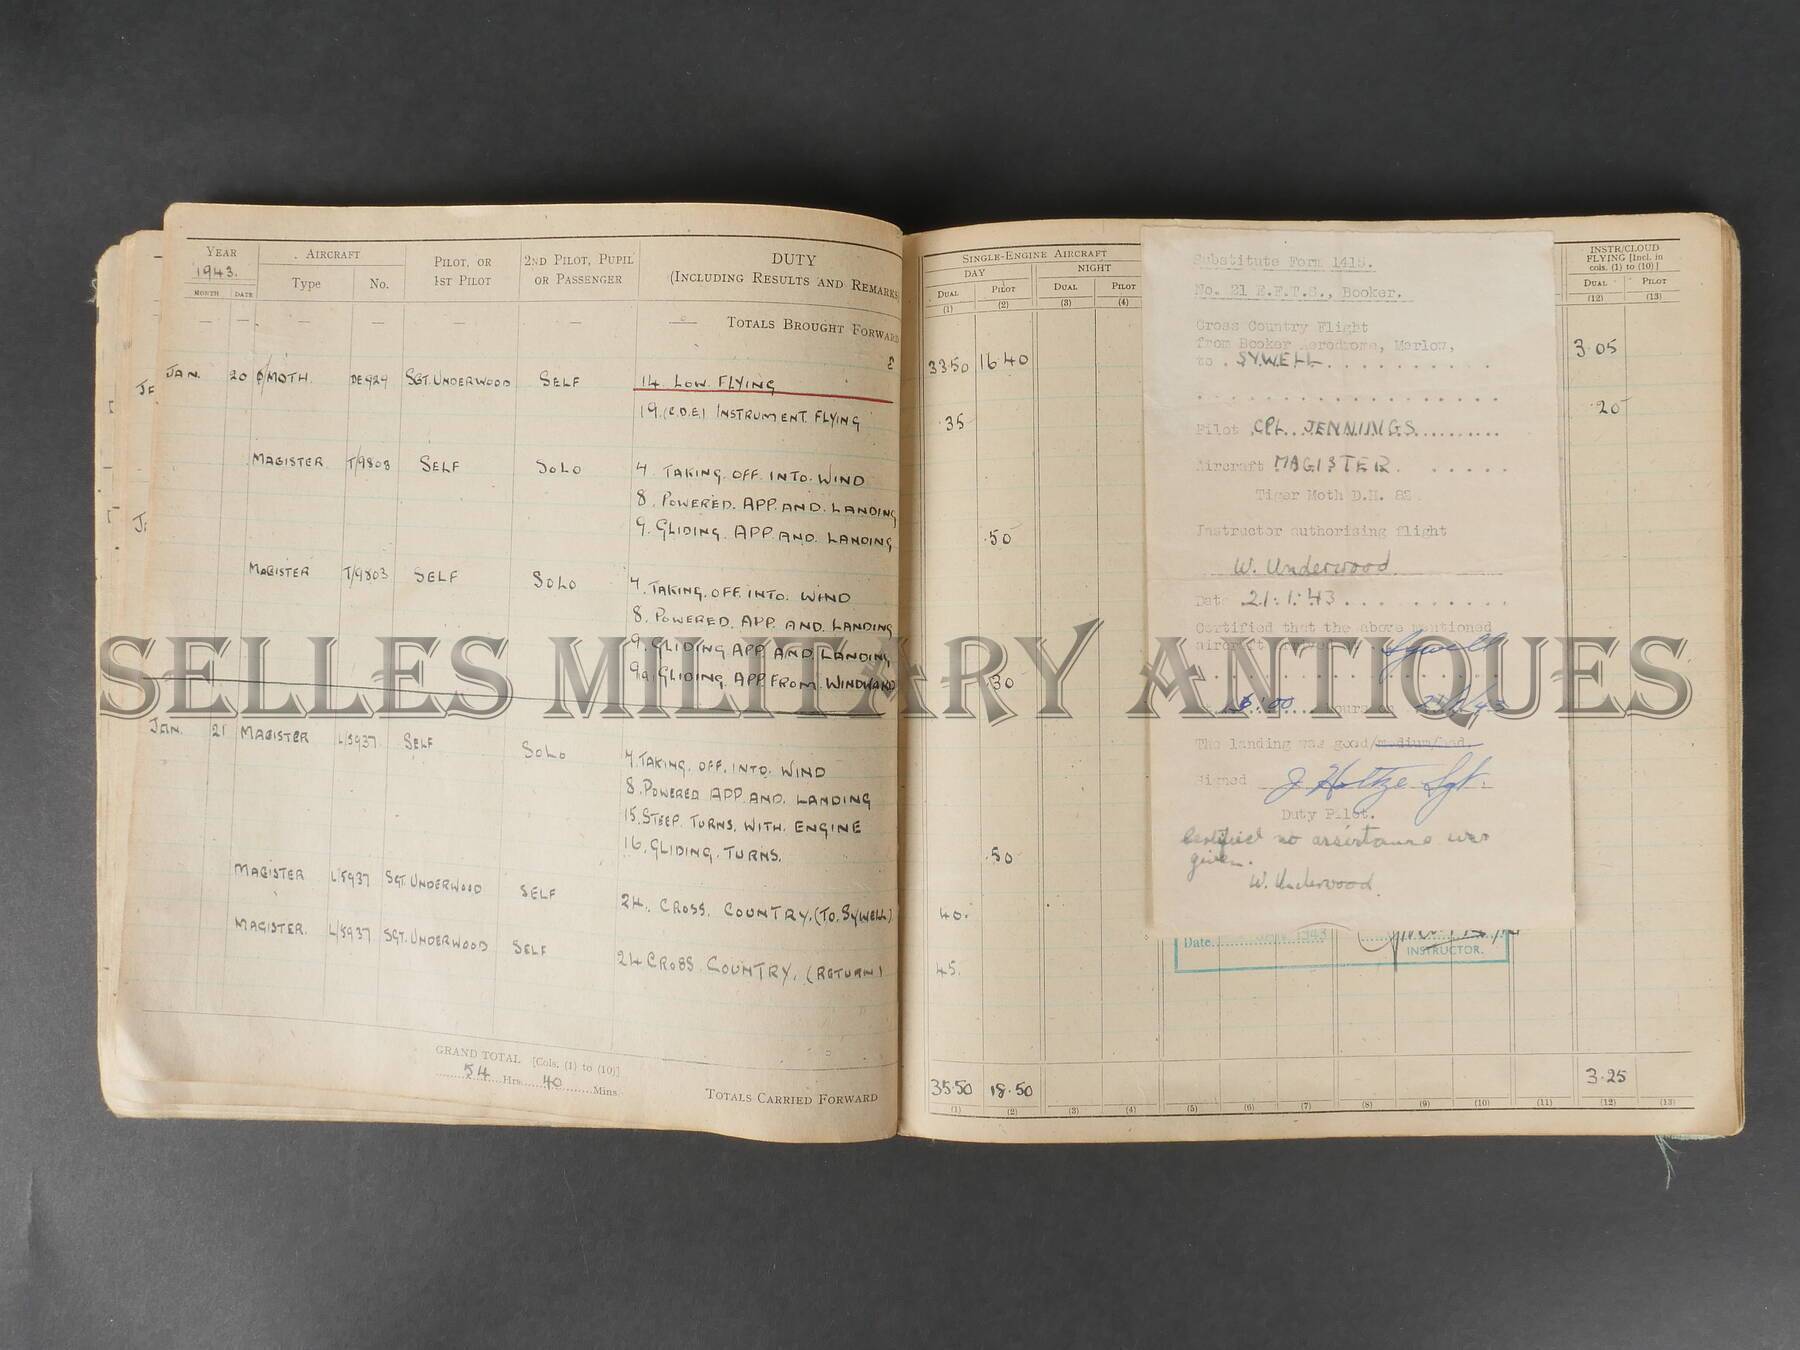 YEAR AIRCRAFT PILOT, OR 2ND PILOT, PUPIL DUTY
1943. Type No. 1ST PILOT OR PASSENGER (INCLUDING RESULTS AND REMARKS)
MONTH DATE
— — — — — — — TOTALS BROUGHT FORWARD
JAN. 20 MOTH. DE929 SGT. UNDERWOOD SELF 14. LOW FLYING
19. (C.D.E.) INSTRUMENT. FLYING
MAGISTER T/9803 SELF SOLO 4. TAKING. OFF. INTO. WIND
8. POWERED. APP. AND. LANDING
9. GLIDING. APP. AND. LANDING
MAGISTER T/9803 SELF SOLO 4. TAKING. OFF. INTO. WIND
8. POWERED. APP. AND. LANDING
9. GLIDING APP. AND. LANDING
9a. GLIDING. APP. FROM. WINDWARD
JAN. 21 MAGISTER L/5937 SELF SOLO 4. TAKING. OFF. INTO. WIND
8. POWERED APP. AND. LANDING
15. STEEP. TURNS. WITH. ENGINE
16. GLIDING. TURNS.
MAGISTER L/5937 SGT. UNDERWOOD SELF 24. CROSS. COUNTRY. (TO. SYWELL)
MAGISTER. L/5937 SGT. UNDERWOOD SELF 24 CROSS. COUNTRY. (RETURN)
GRAND TOTAL [Cols. (1) to (10)]
54 Hrs. 40 Mins.
TOTALS CARRIED FORWARD
SINGLE-ENGINE AIRCRAFT
DAY NIGHT
DUAL PILOT DUAL PILOT
(1) (2) (3) (4)
33.50 16.40
.35
.50
.30
.50
.40.
.45.
35.50 18.50
(1) (2) (3) (4) (5) (6) (7) (8) (9) (10) (11) (12) (13)
Substitute Form 1415.
No. 21 E.F.T.S., Booker.
Cross Country Flight
from Booker Aerodrome, Marlow,
to . SYWELL
Pilot CPL. JENNINGS
Aircraft MAGISTER
Tiger Moth D.H. 82
Instructor authorising flight
W. Underwood
Date 21.1.43
Certified that the above mentioned
aircraft arrived at Sywell
hours on
The landing was good/medium/bad.
Signed J Holtze Sgt.
Duty Pilot.
Certified no assistance was
given.
W. Underwood.
Date 1943
INSTRUCTOR.
INSTR/CLOUD
FLYING [Incl. in
cols. (1) to (10)]
DUAL PILOT
(12) (13)
3.05
.20
3.25
SELLES MILITARY ANTIQUES